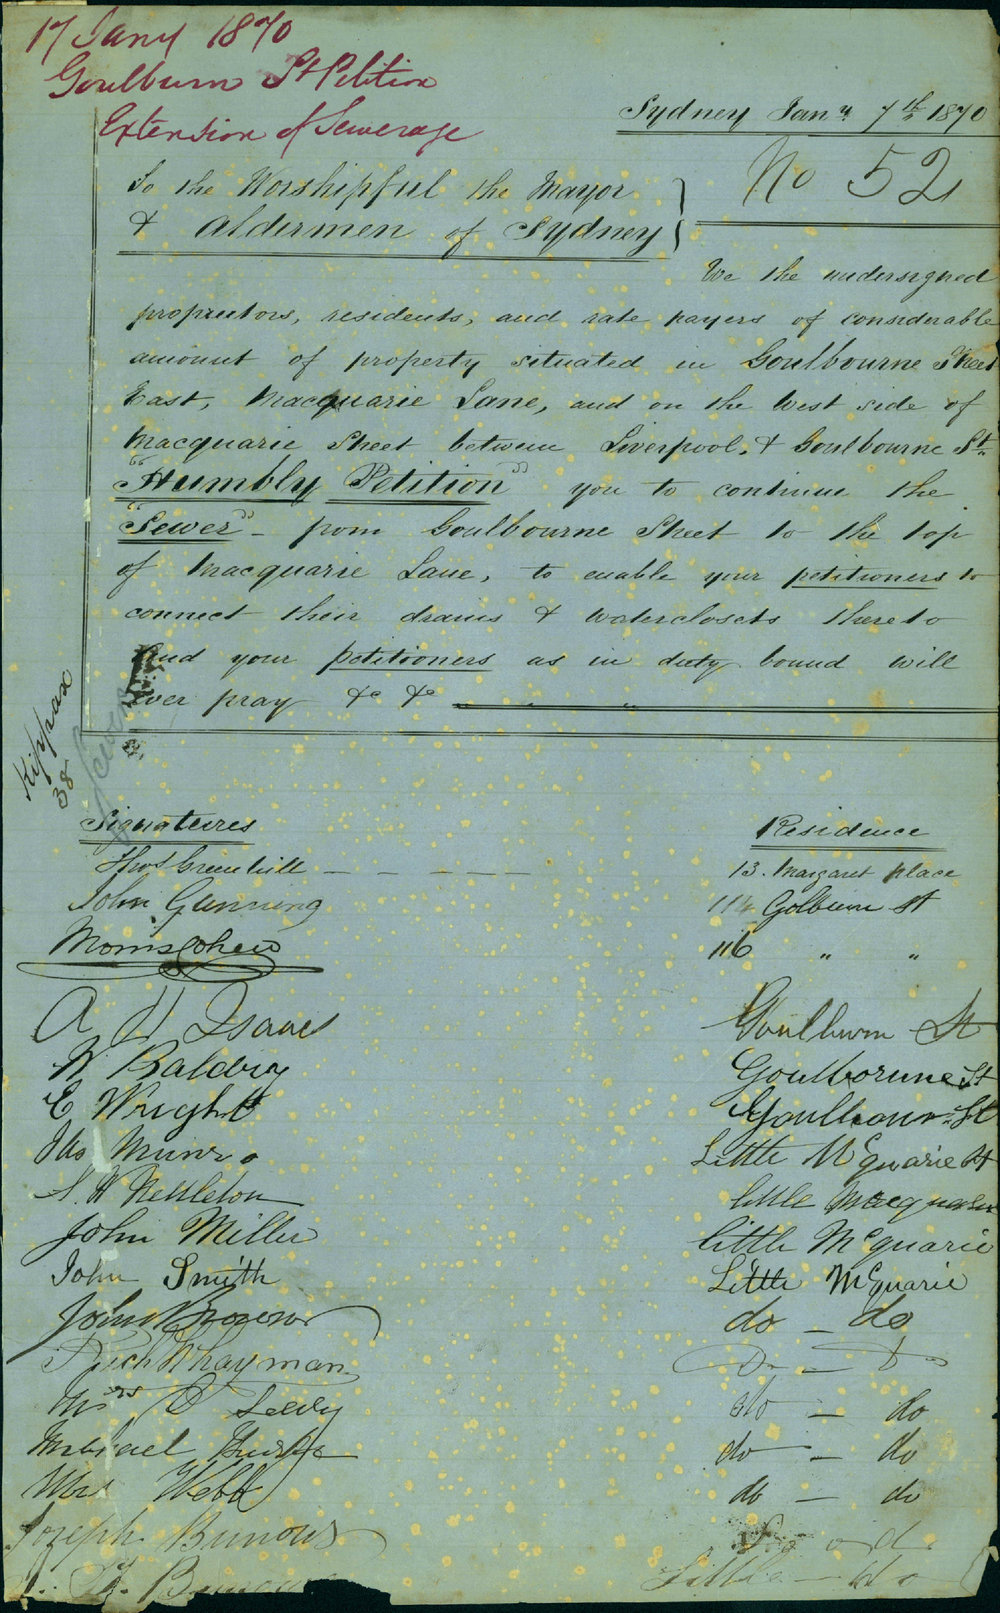 17 Jany 1870
Goulburn St Petition
Extension of Sewerage
Sydney Jany 7th 1870
No 52
To the Worshipful the Mayor
& Aldermen of Sydney
We the undersigned
proprietors, residents, and rate payers of considerable
amount of property situated in Goulbourne Street
East, Macquarie Lane, and on the West side of
Macquarie Street between Liverpool, & Goulbourne St.
"Humbly Petition" you to continue the
"Sewer" - from Goulbourne Street to the top
of Macquarie Lane, to enable your petitioners to
connect their drains & waterclosets thereto
And your petitioners as in duty bound will
ever pray &c &c
Kippax
38
Signatures Residence
Thos Greenhill 13. Margaret place
John Gunning 114 Golburn St
Morris Cohen 116 " "
A H Isaacs Goulburn St
W Baldry Goulborune St
E Wright Goulbourn St
Jas Munro Little McQuarie St
S. H Nettleton little Macquarie
John Miller little McQuarie
John Smith Little McQuarie
John Brown do - do
Rich Whayman Do - Do
Mrs C Levy do - do
Michael do - do
Mrs Webb do - do
Joseph Burrows
Little - do